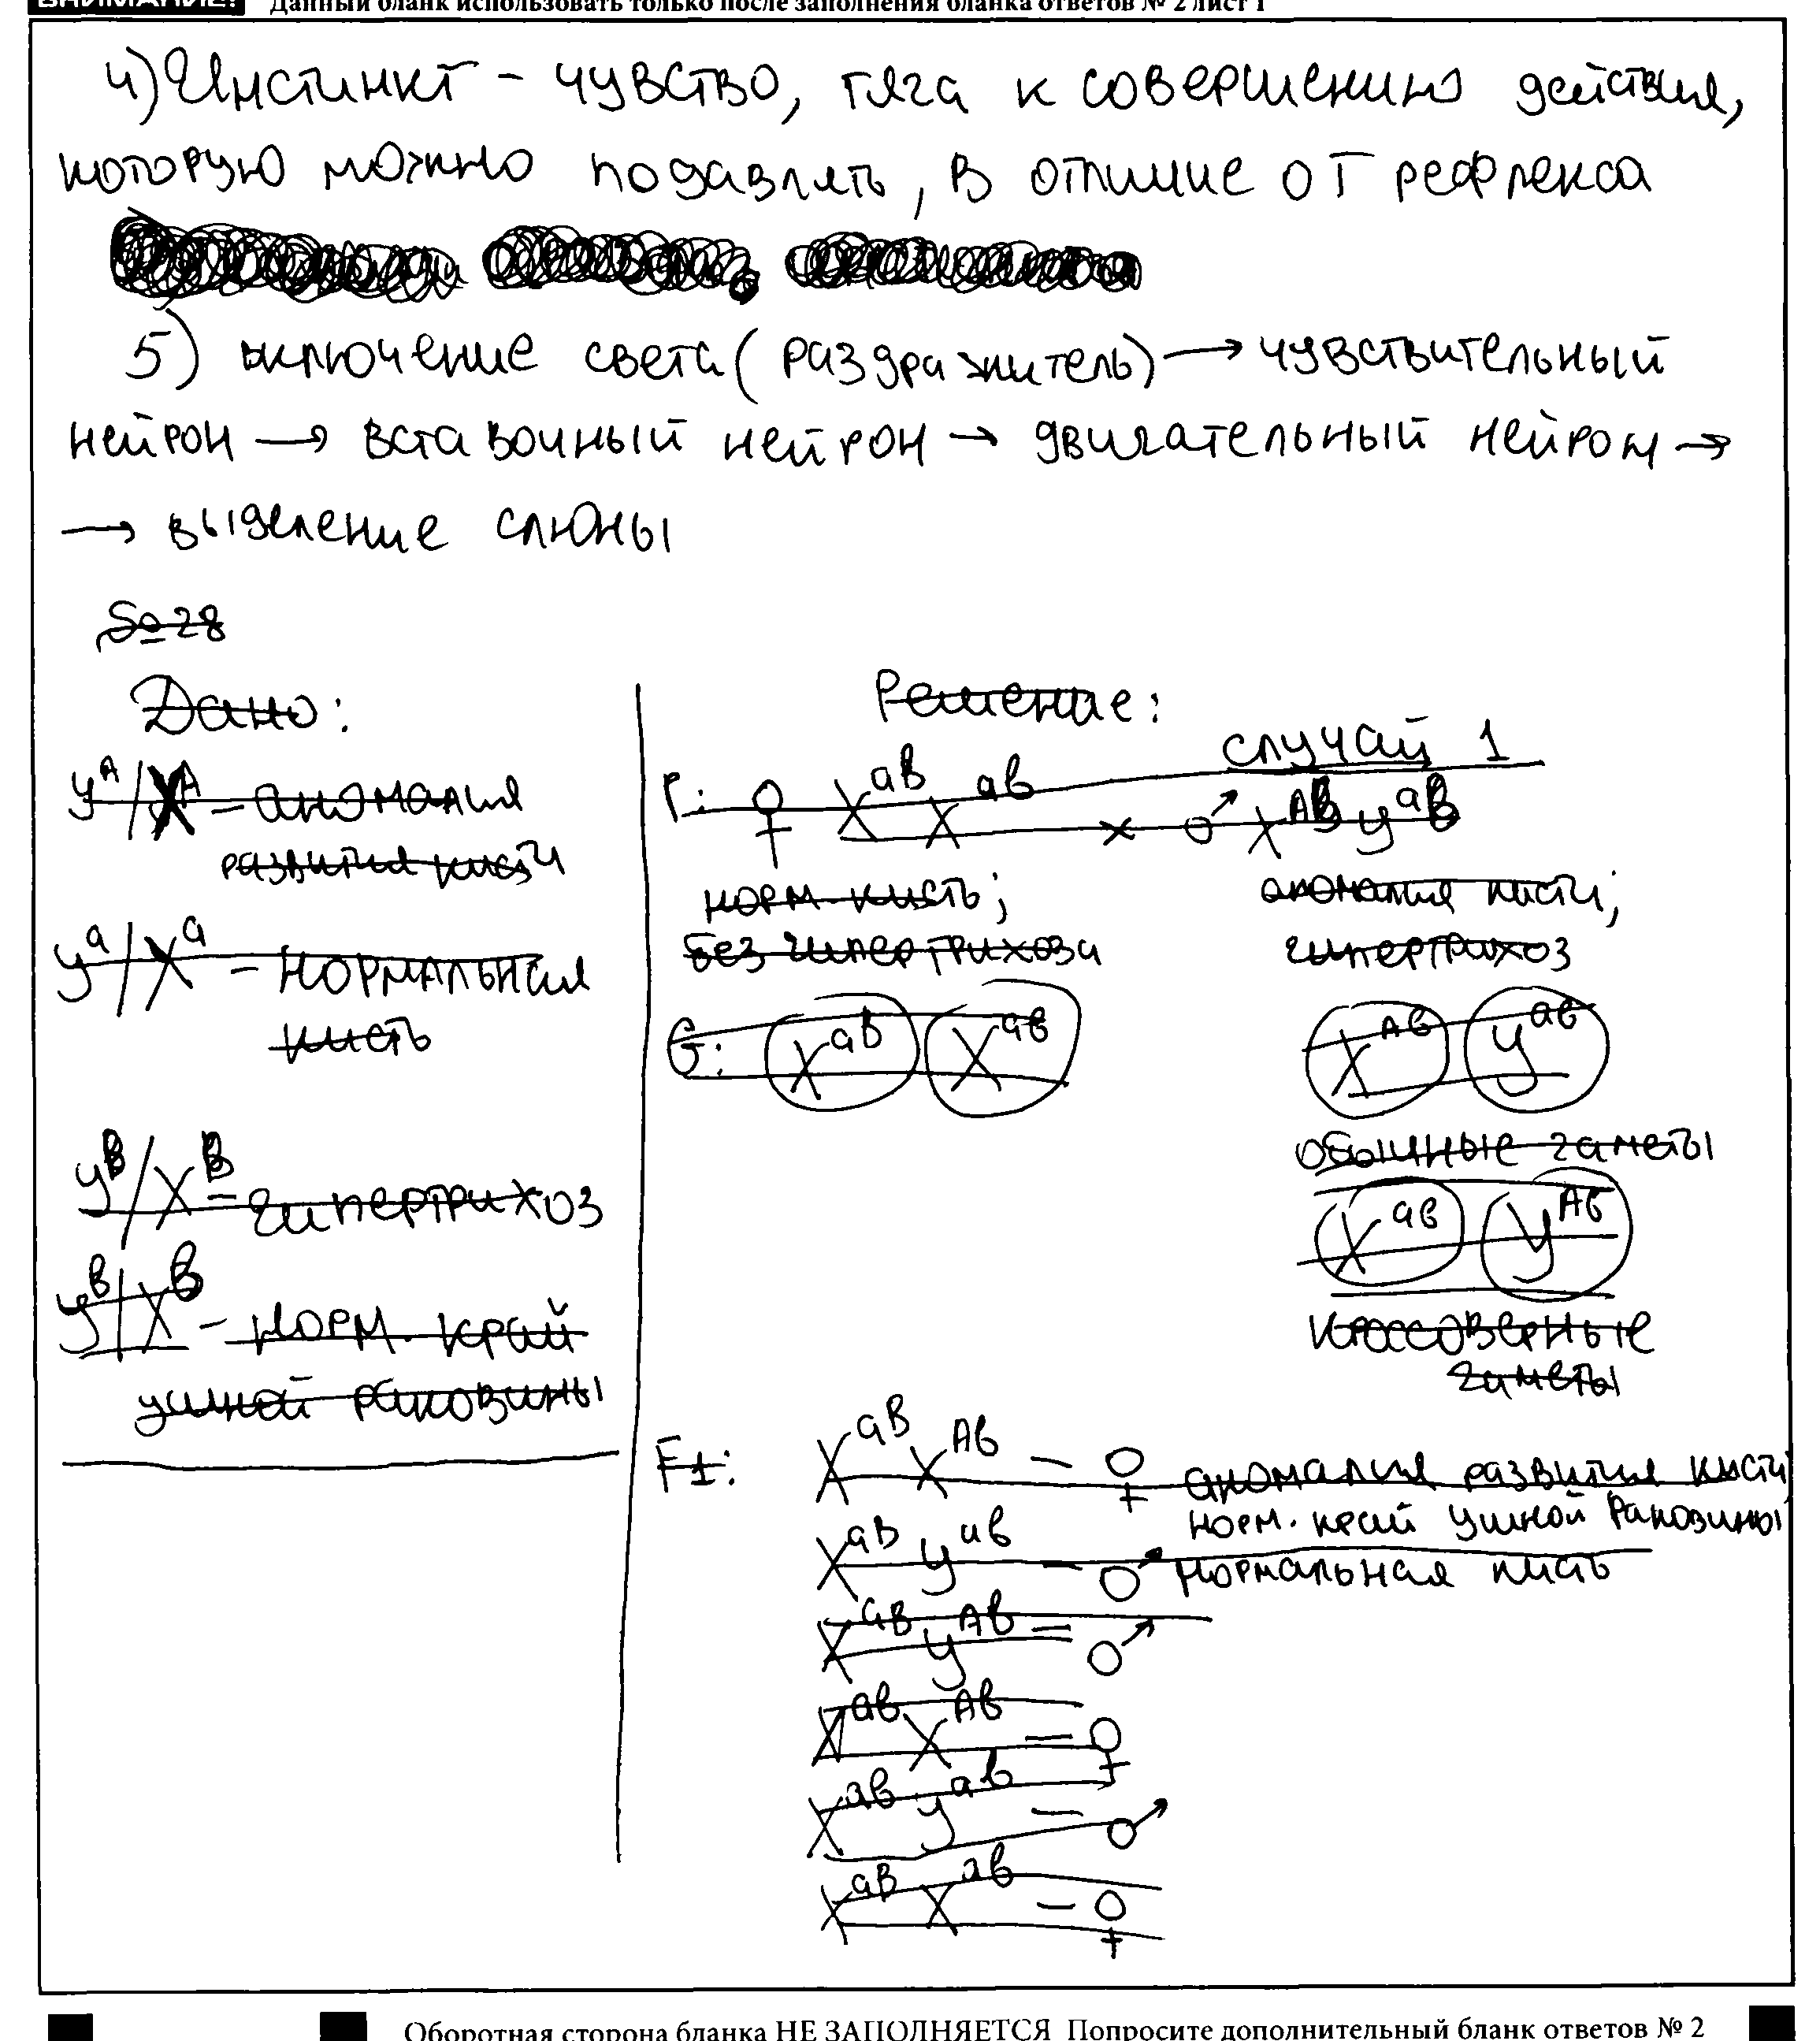 ВНИМАНИЕ! Данный бланк использовать только после заполнения бланка ответов № 2 лист 1
4) Инстинкт - чувство, тяга к совершению действия,
которую можно подавлять, в отличие от рефлекса
5) включение света (раздражитель) → чувствительный
нейрон → вставочный нейрон → двигательный нейрон →
→ выделение слюны
28
Дано:
y^A/X^A - аномалия
развития кисти
y^a/X^a - нормальная
кисть
y^B/X^B - гипертрихоз
y^B/X^B - норм. край
ушной раковины
Решение:
случай 1
P: ♀ X^aB X^ab × ♂ X^Ab y^ab
норм. кисть; аномалия кисти;
без гипертрихоза гипертрихоз
G: X^aB X^ab X^Ab y^ab
обычные гаметы
X^ab y^Ab
кроссоверные
гаметы
F1: X^aB X^Ab - ♀ аномалия развития кисти
норм. край ушной раковины
X^aB y^ab - ♂ нормальная кисть
X^aB y^Ab - ♂
X^ab X^Ab - ♀
X^ab y^ab - ♂
X^aB X^ab - ♀
Оборотная сторона бланка НЕ ЗАПОЛНЯЕТСЯ Попросите дополнительный бланк ответов № 2